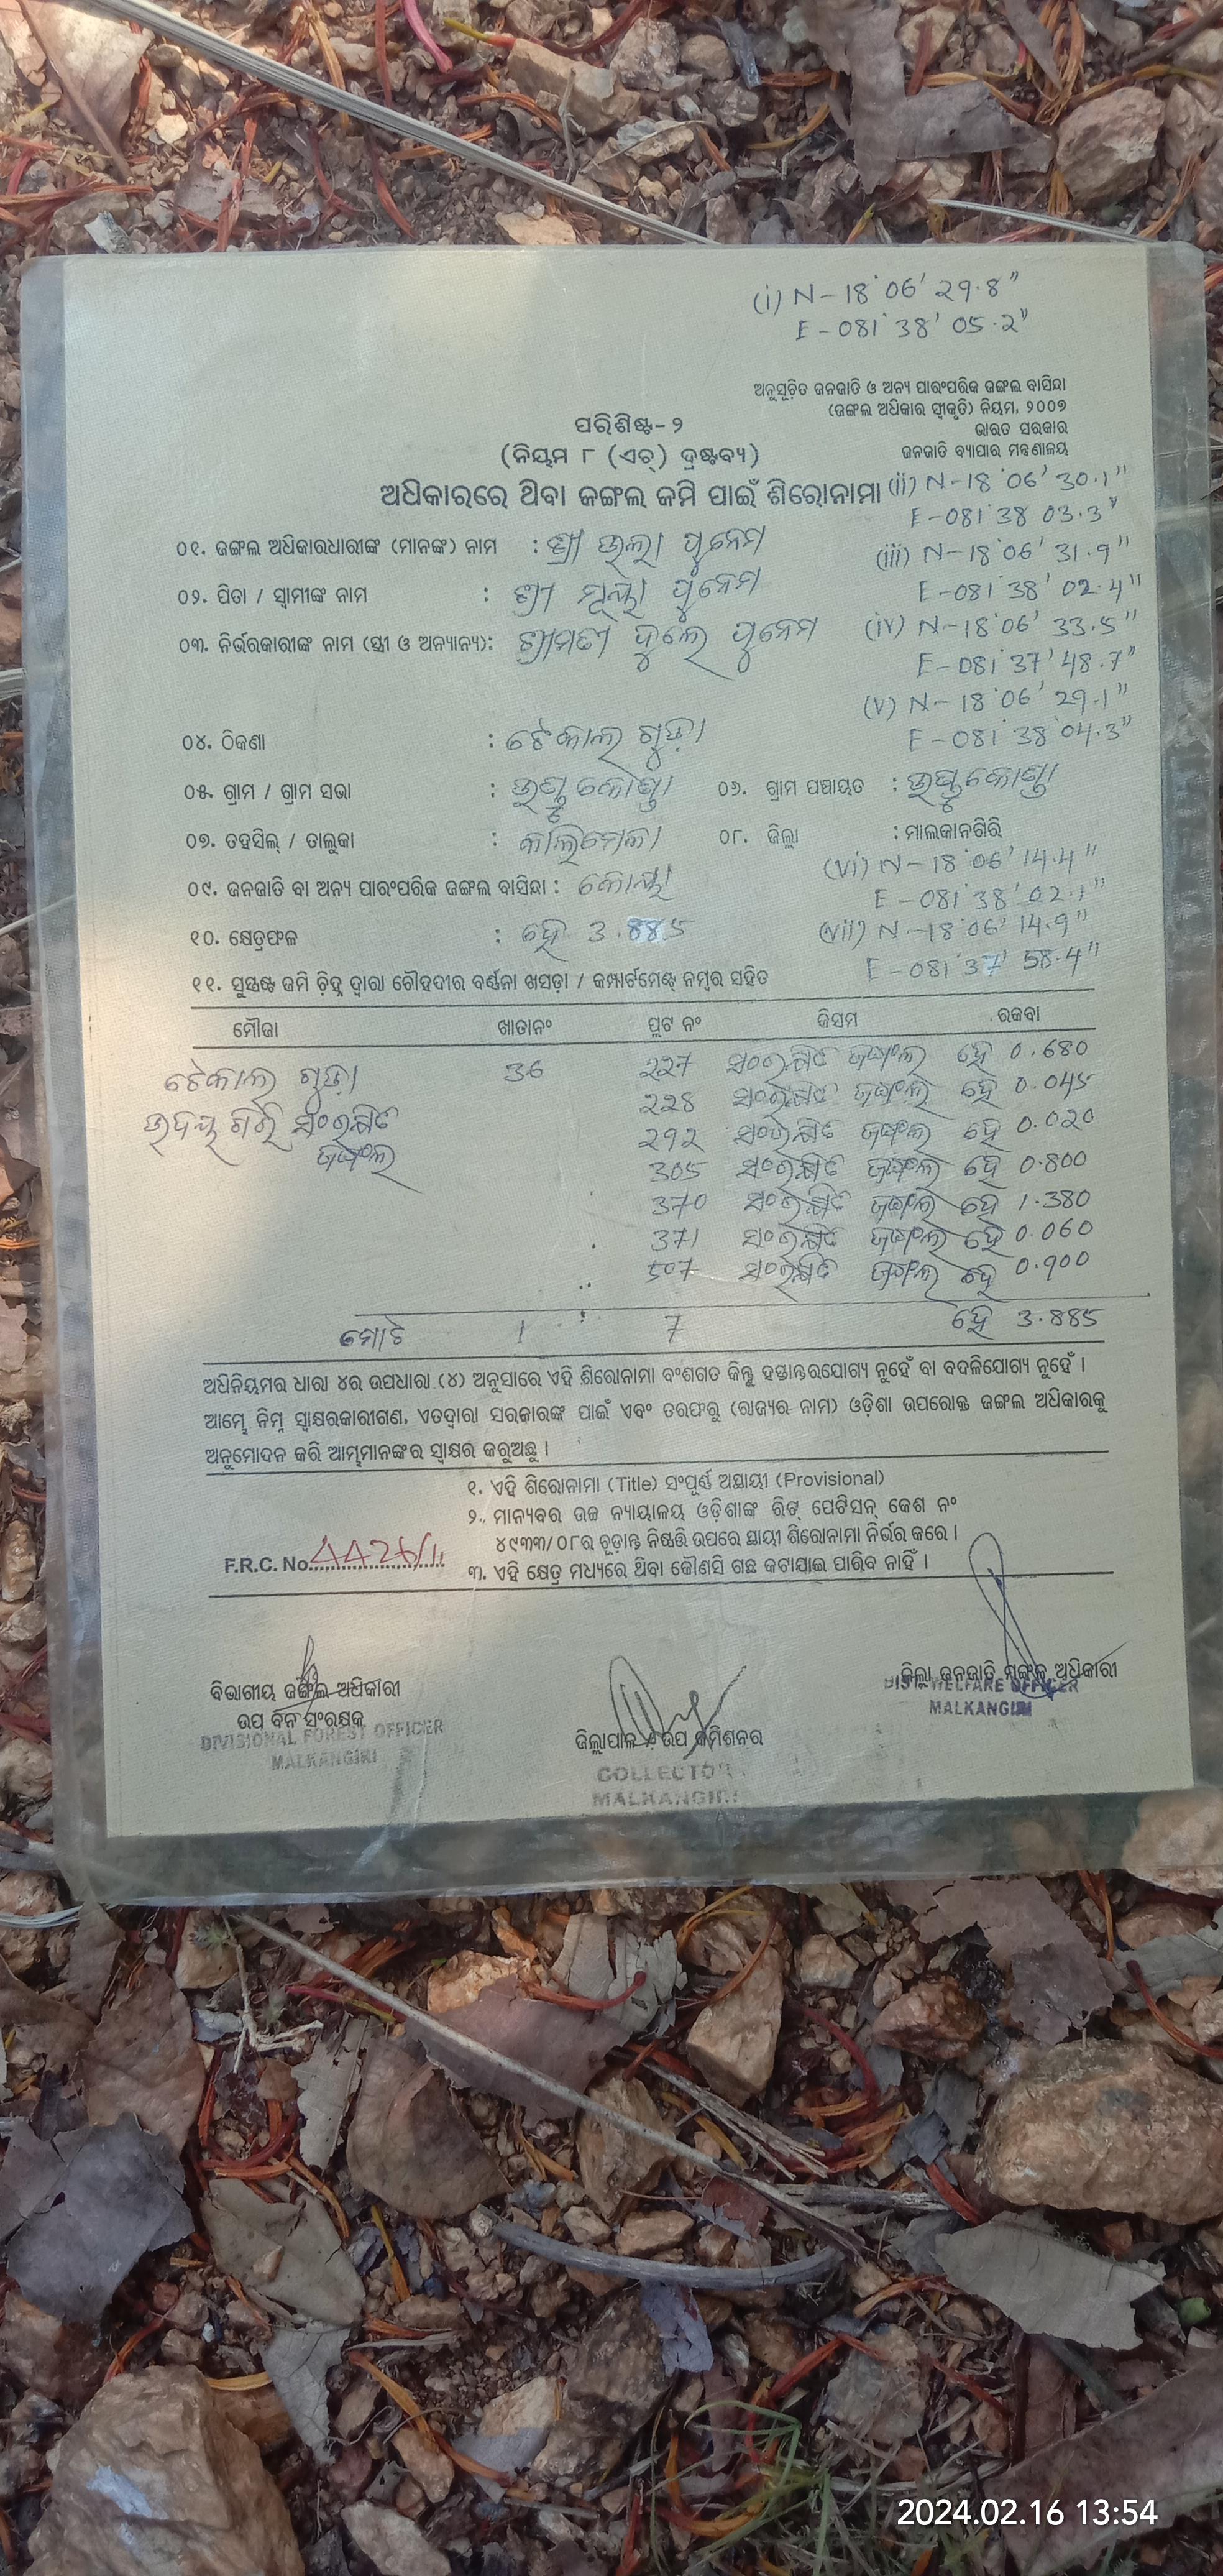 (i) N-18°06' 29.8"
E-081°38' 05.2"
ଅନୁସୂଚିତ ଜନଜାତି ଓ ଅନ୍ୟ ପାରଂପରିକ ଜଙ୍ଗଲ ବାସିନ୍ଦା
(ଜଙ୍ଗଲ ଅଧିକାର ସ୍ୱୀକୃତି) ନିୟମ, ୨୦୦୭
ଭାରତ ସରକାର
ଜନଜାତି ବ୍ୟାପାର ମନ୍ତ୍ରଣାଳୟ
ପରିଶିଷ୍ଟ-୨
(ନିୟମ ୮ (ଏଚ୍) ଦ୍ରଷ୍ଟବ୍ୟ)
ଅଧିକାରରେ ଥିବା ଜଙ୍ଗଲ ଜମି ପାଇଁ ଶିରୋନାମା
(ii) N-18°06' 30.1"
E-081°38 03.3"
୦୧. ଜଙ୍ଗଲ ଅଧିକାରଧାରୀଙ୍କ (ମାନଙ୍କ) ନାମ : ଶ୍ରୀ ଉଲା ପୁନେମ
(iii) N-18°06' 31.9"
E-081°38' 02.4"
୦୨. ପିତା / ସ୍ୱାମୀଙ୍କ ନାମ : ଶ୍ରୀ ମୂୟା ପୁନେମ
୦୩. ନିର୍ଭରକାରୀଙ୍କ ନାମ (ସ୍ତ୍ରୀ ଓ ଅନ୍ୟାନ୍ୟ): ଶ୍ରୀମତୀ ଦୁଲେ ପୁନେମ
(iv) N-18°06' 33.5"
E-081°37' 48.7"
(v) N-18°06' 29.1"
E-081°38' 04.3"
୦୪. ଠିକଣା : ଟେକାଲ ଗୁଡ଼ା
୦୫. ଗ୍ରାମ / ଗ୍ରାମ ସଭା : ଉସ୍କୁକୋଣ୍ଡା ୦୬. ଗ୍ରାମ ପଞ୍ଚାୟତ : ଉସ୍କୁକୋଣ୍ଡା
୦୭. ତହସିଲ୍ / ତାଲୁକା : କାଲିମେଳା ୦୮. ଜିଲ୍ଲା : ମାଲକାନଗିରି
(vi) N-18°06' 14.4"
E-081°38' 02.1"
୦୯. ଜନଜାତି ବା ଅନ୍ୟ ପାରଂପରିକ ଜଙ୍ଗଲ ବାସିନ୍ଦା : କୋୟା
୧୦. କ୍ଷେତ୍ରଫଳ : ହେ 3.885
(vii) N-18°06' 14.9"
E-081°37' 58.4"
୧୧. ସୁସ୍ପଷ୍ଟ ଜମି ଚିହ୍ନ ଦ୍ୱାରା ଚୌହଦୀର ବର୍ଣ୍ଣନା ଖସଡ଼ା / କମ୍ପାର୍ଟମେଣ୍ଟ୍ ନମ୍ବର ସହିତ
ମୌଜା ଖାତାନଂ ପ୍ଲଟ ନଂ କିସମ ରକବା
ଟେକାଲ ଗୁଡ଼ା 36 227 ସଂରକ୍ଷିତ ଜଙ୍ଗଲ ହେ 0.680
ଉଦୟ ଗିରି ସଂରକ୍ଷିତ 228 ସଂରକ୍ଷିତ ଜଙ୍ଗଲ ହେ 0.045
ଜଙ୍ଗଲ 292 ସଂରକ୍ଷିତ ଜଙ୍ଗଲ ହେ 0.020
305 ସଂରକ୍ଷିତ ଜଙ୍ଗଲ ହେ 0.800
370 ସଂରକ୍ଷିତ ଜଙ୍ଗଲ ହେ 1.380
371 ସଂରକ୍ଷିତ ଜଙ୍ଗଲ ହେ 0.060
507 ସଂରକ୍ଷିତ ଜଙ୍ଗଲ ହେ 0.900
ମୋଟ 1 7 ହେ 3.885
ଅଧିନିୟମର ଧାରା ୪ର ଉପଧାରା (୪) ଅନୁସାରେ ଏହି ଶିରୋନାମା ବଂଶଗତ କିନ୍ତୁ ହସ୍ତାନ୍ତରଯୋଗ୍ୟ ନୁହେଁ ବା ବଦଳିଯୋଗ୍ୟ ନୁହେଁ ।
ଆମ୍ଭେ ନିମ୍ନ ସ୍ୱାକ୍ଷରକାରୀଗଣ, ଏତଦ୍ୱାରା ସରକାରଙ୍କ ପାଇଁ ଏବଂ ତରଫରୁ (ରାଜ୍ୟର ନାମ) ଓଡ଼ିଶା ଉପରୋକ୍ତ ଜଙ୍ଗଲ ଅଧିକାରକୁ
ଅନୁମୋଦନ କରି ଆମ୍ଭମାନଙ୍କର ସ୍ୱାକ୍ଷର କରୁଅଛୁ ।
୧. ଏହି ଶିରୋନାମା (Title) ସଂପୂର୍ଣ୍ଣ ଅସ୍ଥାୟୀ (Provisional)
୨. ମାନ୍ୟବର ଉଚ୍ଚ ନ୍ୟାୟାଳୟ ଓଡ଼ିଶାଙ୍କ ରିଟ୍ ପେଟିସନ୍ କେଶ ନଂ
୪୯୩୩/୦୮ର ଚୂଡ଼ାନ୍ତ ନିଷ୍ପତ୍ତି ଉପରେ ସ୍ଥାୟୀ ଶିରୋନାମା ନିର୍ଭର କରେ ।
F.R.C. No. 4426/11
୩. ଏହି କ୍ଷେତ୍ର ମଧ୍ୟରେ ଥିବା କୌଣସି ଗଛ କଟାଯାଇ ପାରିବ ନାହିଁ ।
ବିଭାଗୀୟ ଜଙ୍ଗଲ ଅଧିକାରୀ
ଉପ ବନ ସଂରକ୍ଷକ
DIVISIONAL FOREST OFFICER
MALKANGIRI
ଜିଲ୍ଲାପାଳ ଓ ଉପ କମିଶନର
COLLECTOR
MALKANGIRI
ଜିଲ୍ଲା ଜନଜାତି ମଙ୍ଗଳ ଅଧିକାରୀ
DIST. WELFARE OFFICER
MALKANGIRI
2024.02.16 13:54